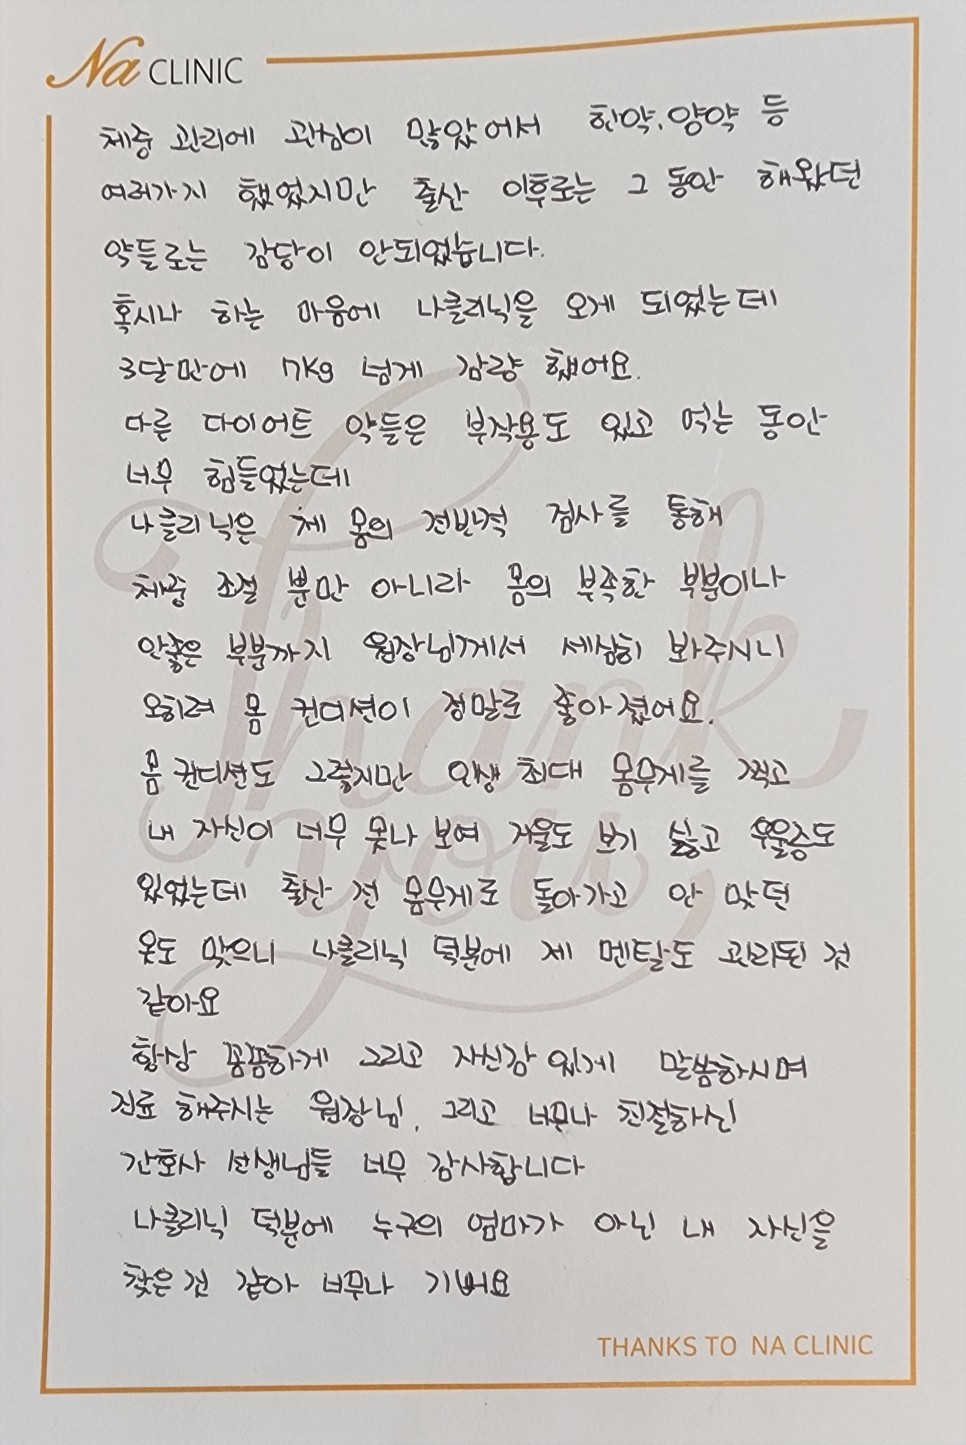 Na CLINIC
체중 관리에 관심이 많았어서 한약, 양약 등
여러가지 했었지만 출산 이후로는 그 동안 해왔던
약들로는 감당이 안되었습니다.
혹시나 하는 마음에 나클리닉을 오게 되었는데
3달만에 17kg 넘게 감량 했어요.
다른 다이어트 약들은 부작용도 있고 먹는 동안
너무 힘들었는데
나클리닉은 체 몸의 전반적 검사를 통해
체중 조절 뿐만 아니라 몸의 부족한 부분이나
안좋은 부분까지 원장님께서 세심히 봐주시니
오히려 몸 컨디션이 정말로 좋아졌어요.
몸 컨디션도 그렇지만 인생 최대 몸무게를 찍고
내 자신이 너무 못나 보여 거울도 보기 싫고 우울증도
있었는데 출산 전 몸무게로 돌아가고 안 맞던
옷도 맞으니 나클리닉 덕분에 제 멘탈도 관리된 것
같아요
항상 꼼꼼하게 그리고 자신감 있게 말씀하시며
진료 해주시는 원장님, 그리고 너무나 친절하신
간호사 선생님들 너무 감사합니다
나클리닉 덕분에 누구의 엄마가 아닌 내 자신을
찾은 것 같아 너무나 기뻐요
Thank
you
THANKS TO NA CLINIC